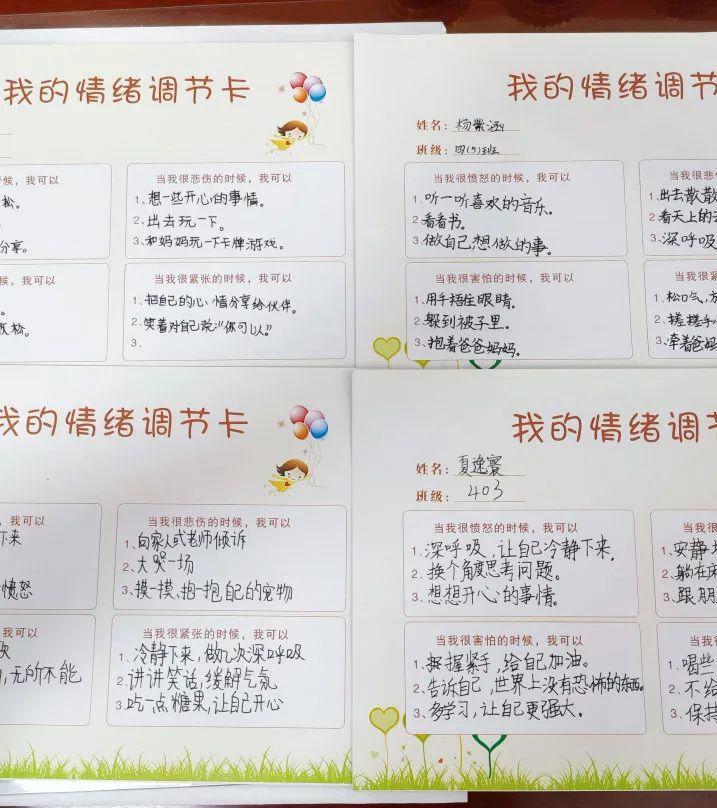 我的情绪调节卡
时候，我可以
松。
分享。
当我很悲伤的时候，我可以
1、想一些开心的事情。
2、出去玩一下。
3、和妈妈玩一下卡牌游戏。
候，我可以
松。
当我很紧张的时候，我可以
1、把自己的心情分享给伙伴。
2、笑着对自己说：“你可以”
3、
我的情绪调节
姓名：杨紫涵
班级：四(5)班
当我很愤怒的时候，我可以
1、听一听喜欢的音乐。
2、看看书。
3、做自己想做的事。
当我很
1、出去散散
2、看天上的
3、深呼吸
当我很害怕的时候，我可以
1、用手捂住眼睛。
2、躲到被子里。
3、抱着爸爸妈妈。
当我很紧
1、松口气，
2、搓搓手
3、牵着爸妈
我的情绪调节卡
，我可以
下来
愤怒
当我很悲伤的时候，我可以
1、向家人或老师倾诉
2、大哭一场
3、摸一摸、抱一抱自己的宠物
我可以
，无所不能
当我很紧张的时候，我可以
1、冷静下来，做几次深呼吸
2、讲讲笑话，缓解气氛
3、吃一点糖果，让自己开心
我的情绪调节
姓名：夏逸
班级：403
当我很愤怒的时候，我可以
1、深呼吸，让自己冷静下来。
2、换个角度思考问题。
3、想想开心的事情。
当我很
1、安静
2、躺在
3、跟朋
当我很害怕的时候，我可以
1、握紧手，给自己加油。
2、告诉自己，世界上没有恐怖的东西。
3、多学习，让自己更强大。
当我很
1、喝些
2、不给
3、保持